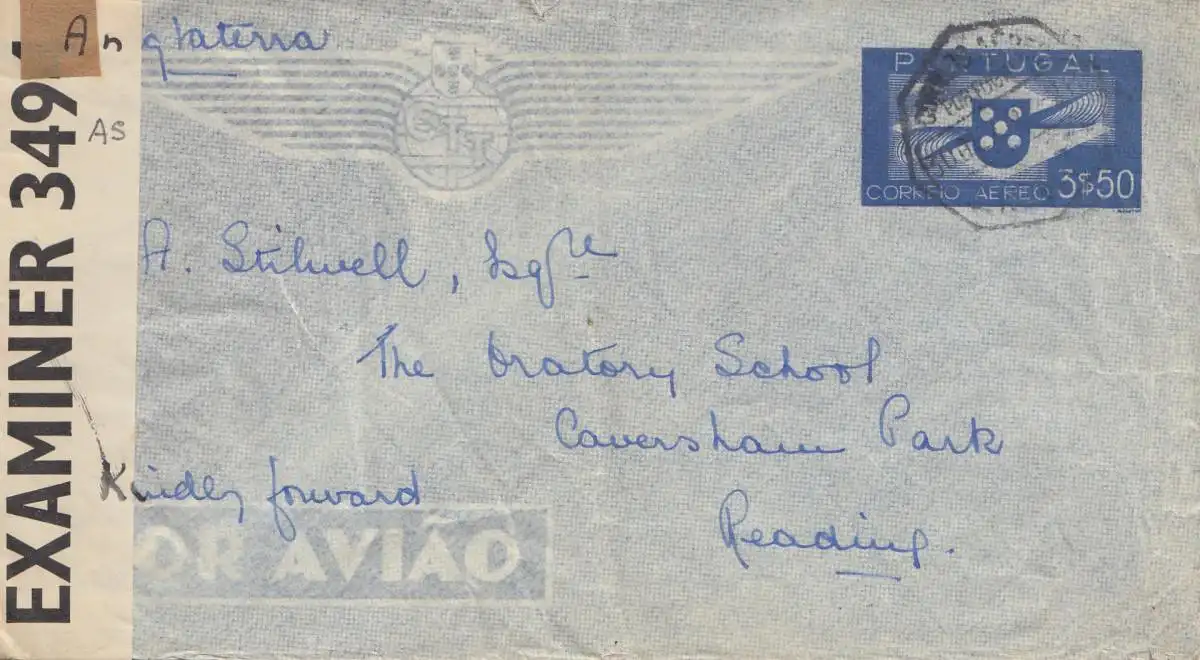 Anglaterra
AS
PORTUGAL
CORREIO AEREO 3$50
CTT
A. Stilwell, Esqre
The Oratory School
Caversham Park
Reading.
Kindly forward
OR AVIÃO
EXAMINER 349